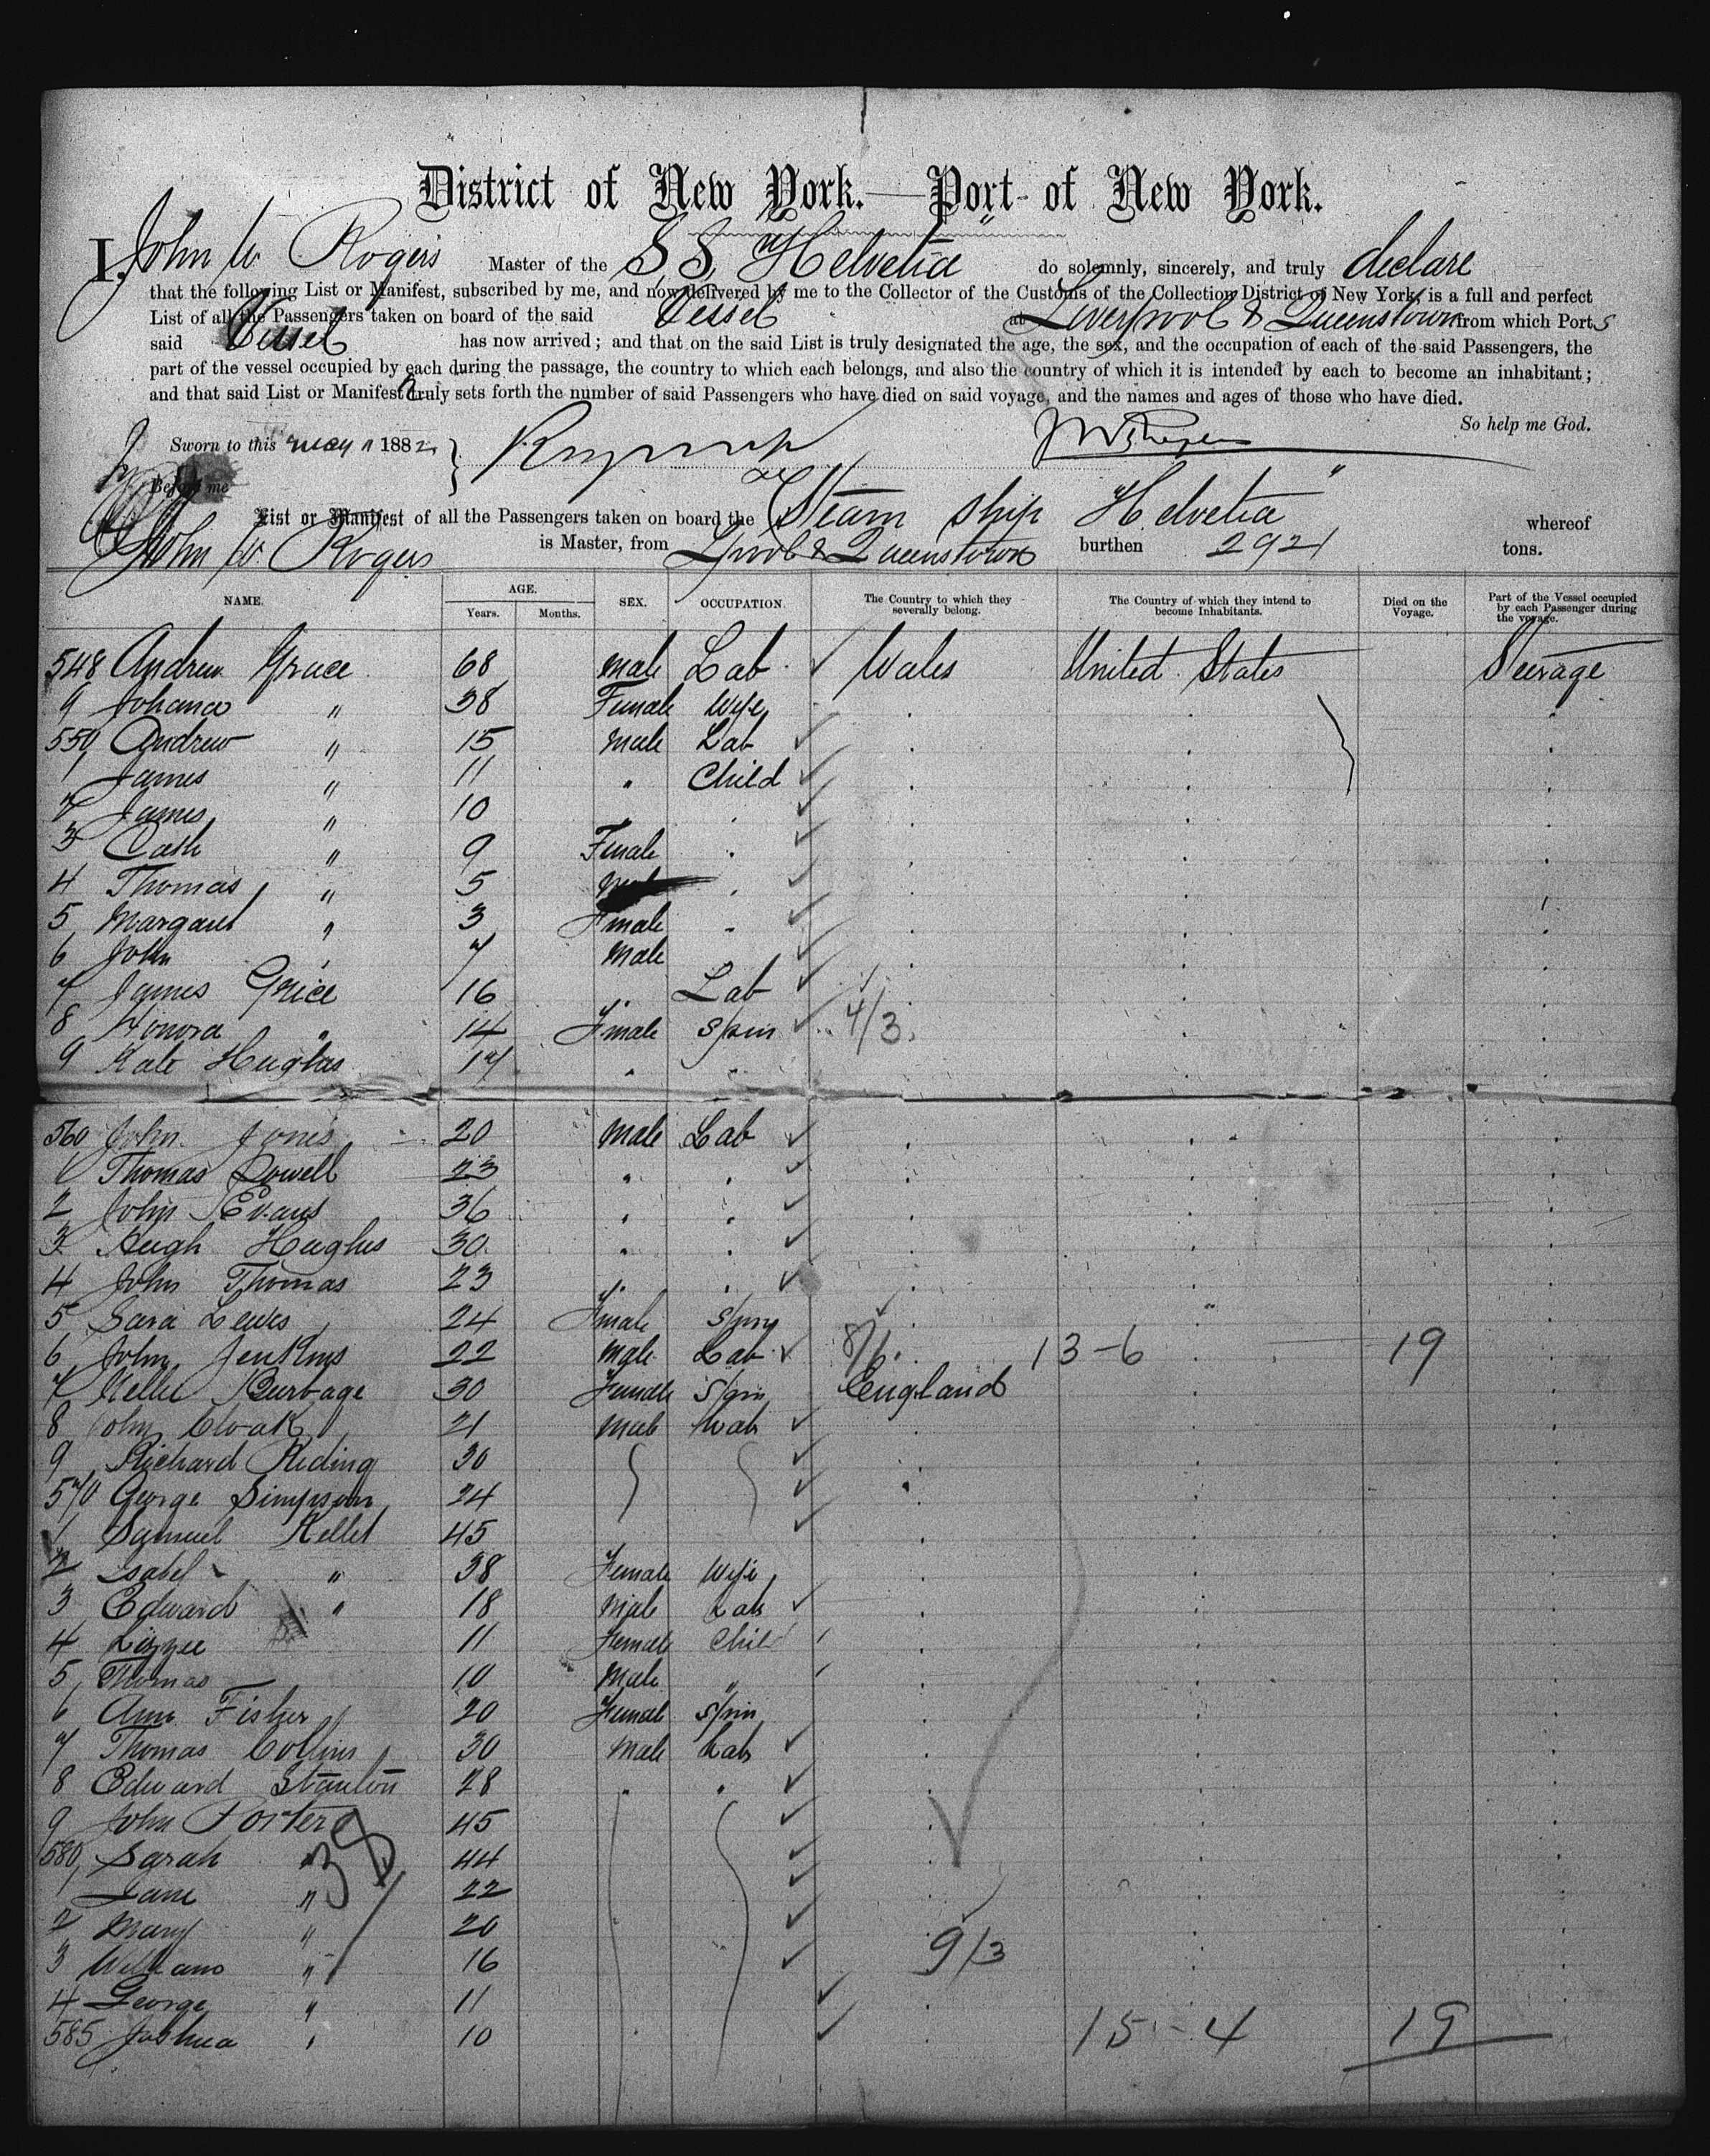 District of New York.—Port of New York.
I, John W. Rogers Master of the SS "Helvetia" do solemnly, sincerely, and truly declare
that the following List or Manifest, subscribed by me, and now delivered by me to the Collector of the Customs of the Collection District of New York, is a full and perfect
List of all the Passengers taken on board of the said Vessel at Liverpool & Queenstown from which Ports
said Vessel has now arrived; and that on the said List is truly designated the age, the sex, and the occupation of each of the said Passengers, the
part of the vessel occupied by each during the passage, the country to which each belongs, and also the country of which it is intended by each to become an inhabitant;
and that said List or Manifest truly sets forth the number of said Passengers who have died on said voyage, and the names and ages of those who have died.
So help me God.
Sworn to this May 1 1882
Before me
List or Manifest of all the Passengers taken on board the Steam Ship Helvetia" whereof
John W. Rogers is Master, from Lpool & Queenstown burthen 2921 tons.
NAME. AGE. Years. Months. SEX. OCCUPATION. The Country to which they severally belong. The Country of which they intend to become Inhabitants. Died on the Voyage. Part of the Vessel occupied by each Passenger during the voyage.
548 Andrew Grace 68 Male Lab Wales United States Steerage
9 Johana " 38 Female Wife
550 Andrew " 15 Male Lab
1 James " 11 " Child
2 James " 10
3 Cath " 9 Female
4 Thomas " 5
5 Margaret " 3 Female
6 John 7 Male
7 James Grice 16 Lab
8 Honora " 14 Female Spin 4/3
9 Kate Hughes 17
560 John Jones 20 Male Lab
1 Thomas Powell 23
2 John Evans 36
3 Hugh Hughes 30
4 John Thomas 23
5 Sara Lewis 24 Female Spin
6 John Jenkins 22 Male Lab 8/1 13-6 19
7 Nellie Burbage 30 Female Spin England
8 John Cloak 21 Male Lab
9 Richard Riding 30
570 George Simpson 24
1 Samuel Kellet 45
2 Isabel " 38 Female Wife
3 Edward " 18 Male Lab
4 Lizzee 11 Female Child
5 Thomas 10 Male "
6 Ann Fisher 20 Female Spin
7 Thomas Collins 30 Male Lab
8 Edward Stanton 28 " "
9 John Porter 45
580 Sarah " 44
1 Jane " 22
2 Mary " 20
3 William " 16 9/3
4 George " 11
585 Joshua " 10 15-4 19
38